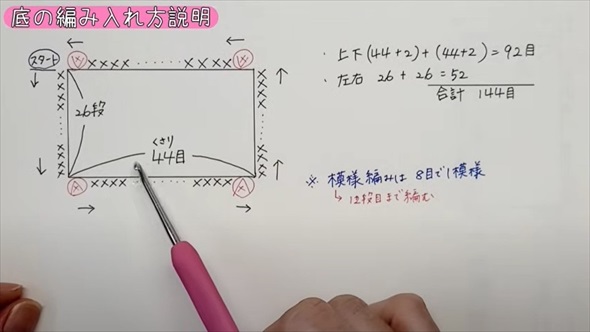 底の編み入れ方説明
スタート
26段
くさり
44目
・上下(44+2)+(44+2)=92目
・左右 26+26=52
合計 144目
※ 模様編みは 8目で1模様
↳12段目まで編む